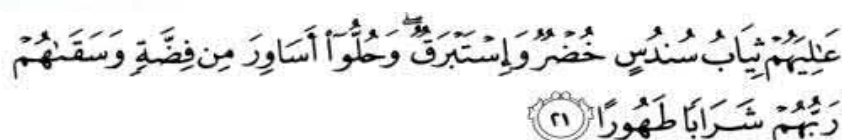 عَٰلِيَهُمْ ثِيَابُ سُندُسٍ خُضْرٌ وَإِسْتَبْرَقٌ ۖ وَحُلُّوٓا۟ أَسَاوِرَ مِن فِضَّةٍ وَسَقَىٰهُمْ
رَبُّهُمْ شَرَابًا طَهُورًا ٢١